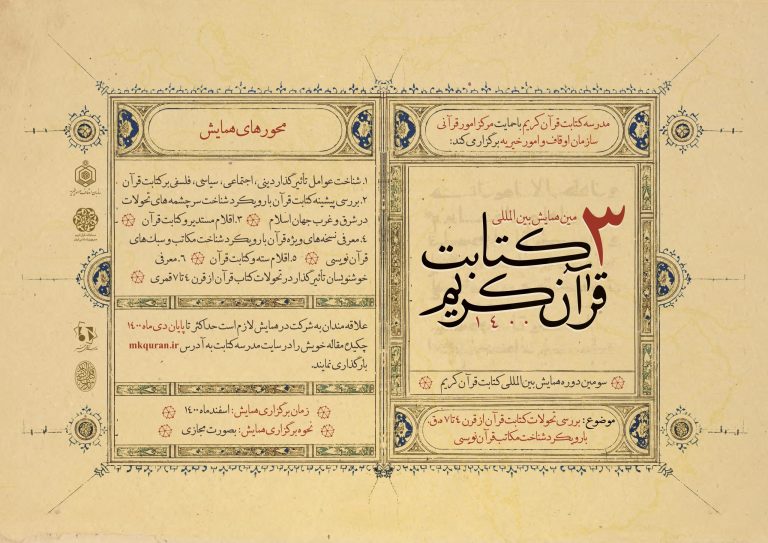 مدرسه کتابت قرآن کریم با حمایت مرکز امور قرآنی
سازمان اوقاف و امور خیریه برگزار می‌کند:
۳مین همایش بین المللی
کتابت
قرآن کریم
۱۴۰۰
سومین دوره همایش بین المللی کتابت قرآن کریم
موضوع: بررسی تحولات کتابت قرآن از قرن ٤ تا ٧ ه.ق.
با رویکرد شناخت مکاتب قرآن نویسی
محورهای همایش
۱. شناخت عوامل تأثیرگذار دینی، اجتماعی، سیاسی، فلسفی بر کتابت قرآن
۲. بررسی پیشینه کتابت قرآن با رویکرد شناخت سرچشمه های تحولات
در شرق و غرب جهان اسلام ۳. اقلام مستدیر و کتابت قرآن
٤. معرفی نسخه های ویژه قرآن با رویکرد شناخت مکاتب و سبک های
قرآن نویسی ٥. اقلام سته و کتابت قرآن ٦. معرفی
خوشنویسان تأثیرگذار در تحولات کتاب قرآن از قرن ٤ تا ٧ قمری
علاقه مندان به شرکت در همایش لازم است حداکثر تا پایان دی ماه ۱٤۰۰
چکیدهٔ مقاله خویش را در سایت مدرسه کتابت به آدرس mkquran.ir
بارگذاری نمایند.
زمان برگزاری همایش: اسفند ماه ۱٤۰۰
نحوه برگزاری همایش: بصورت مجازی